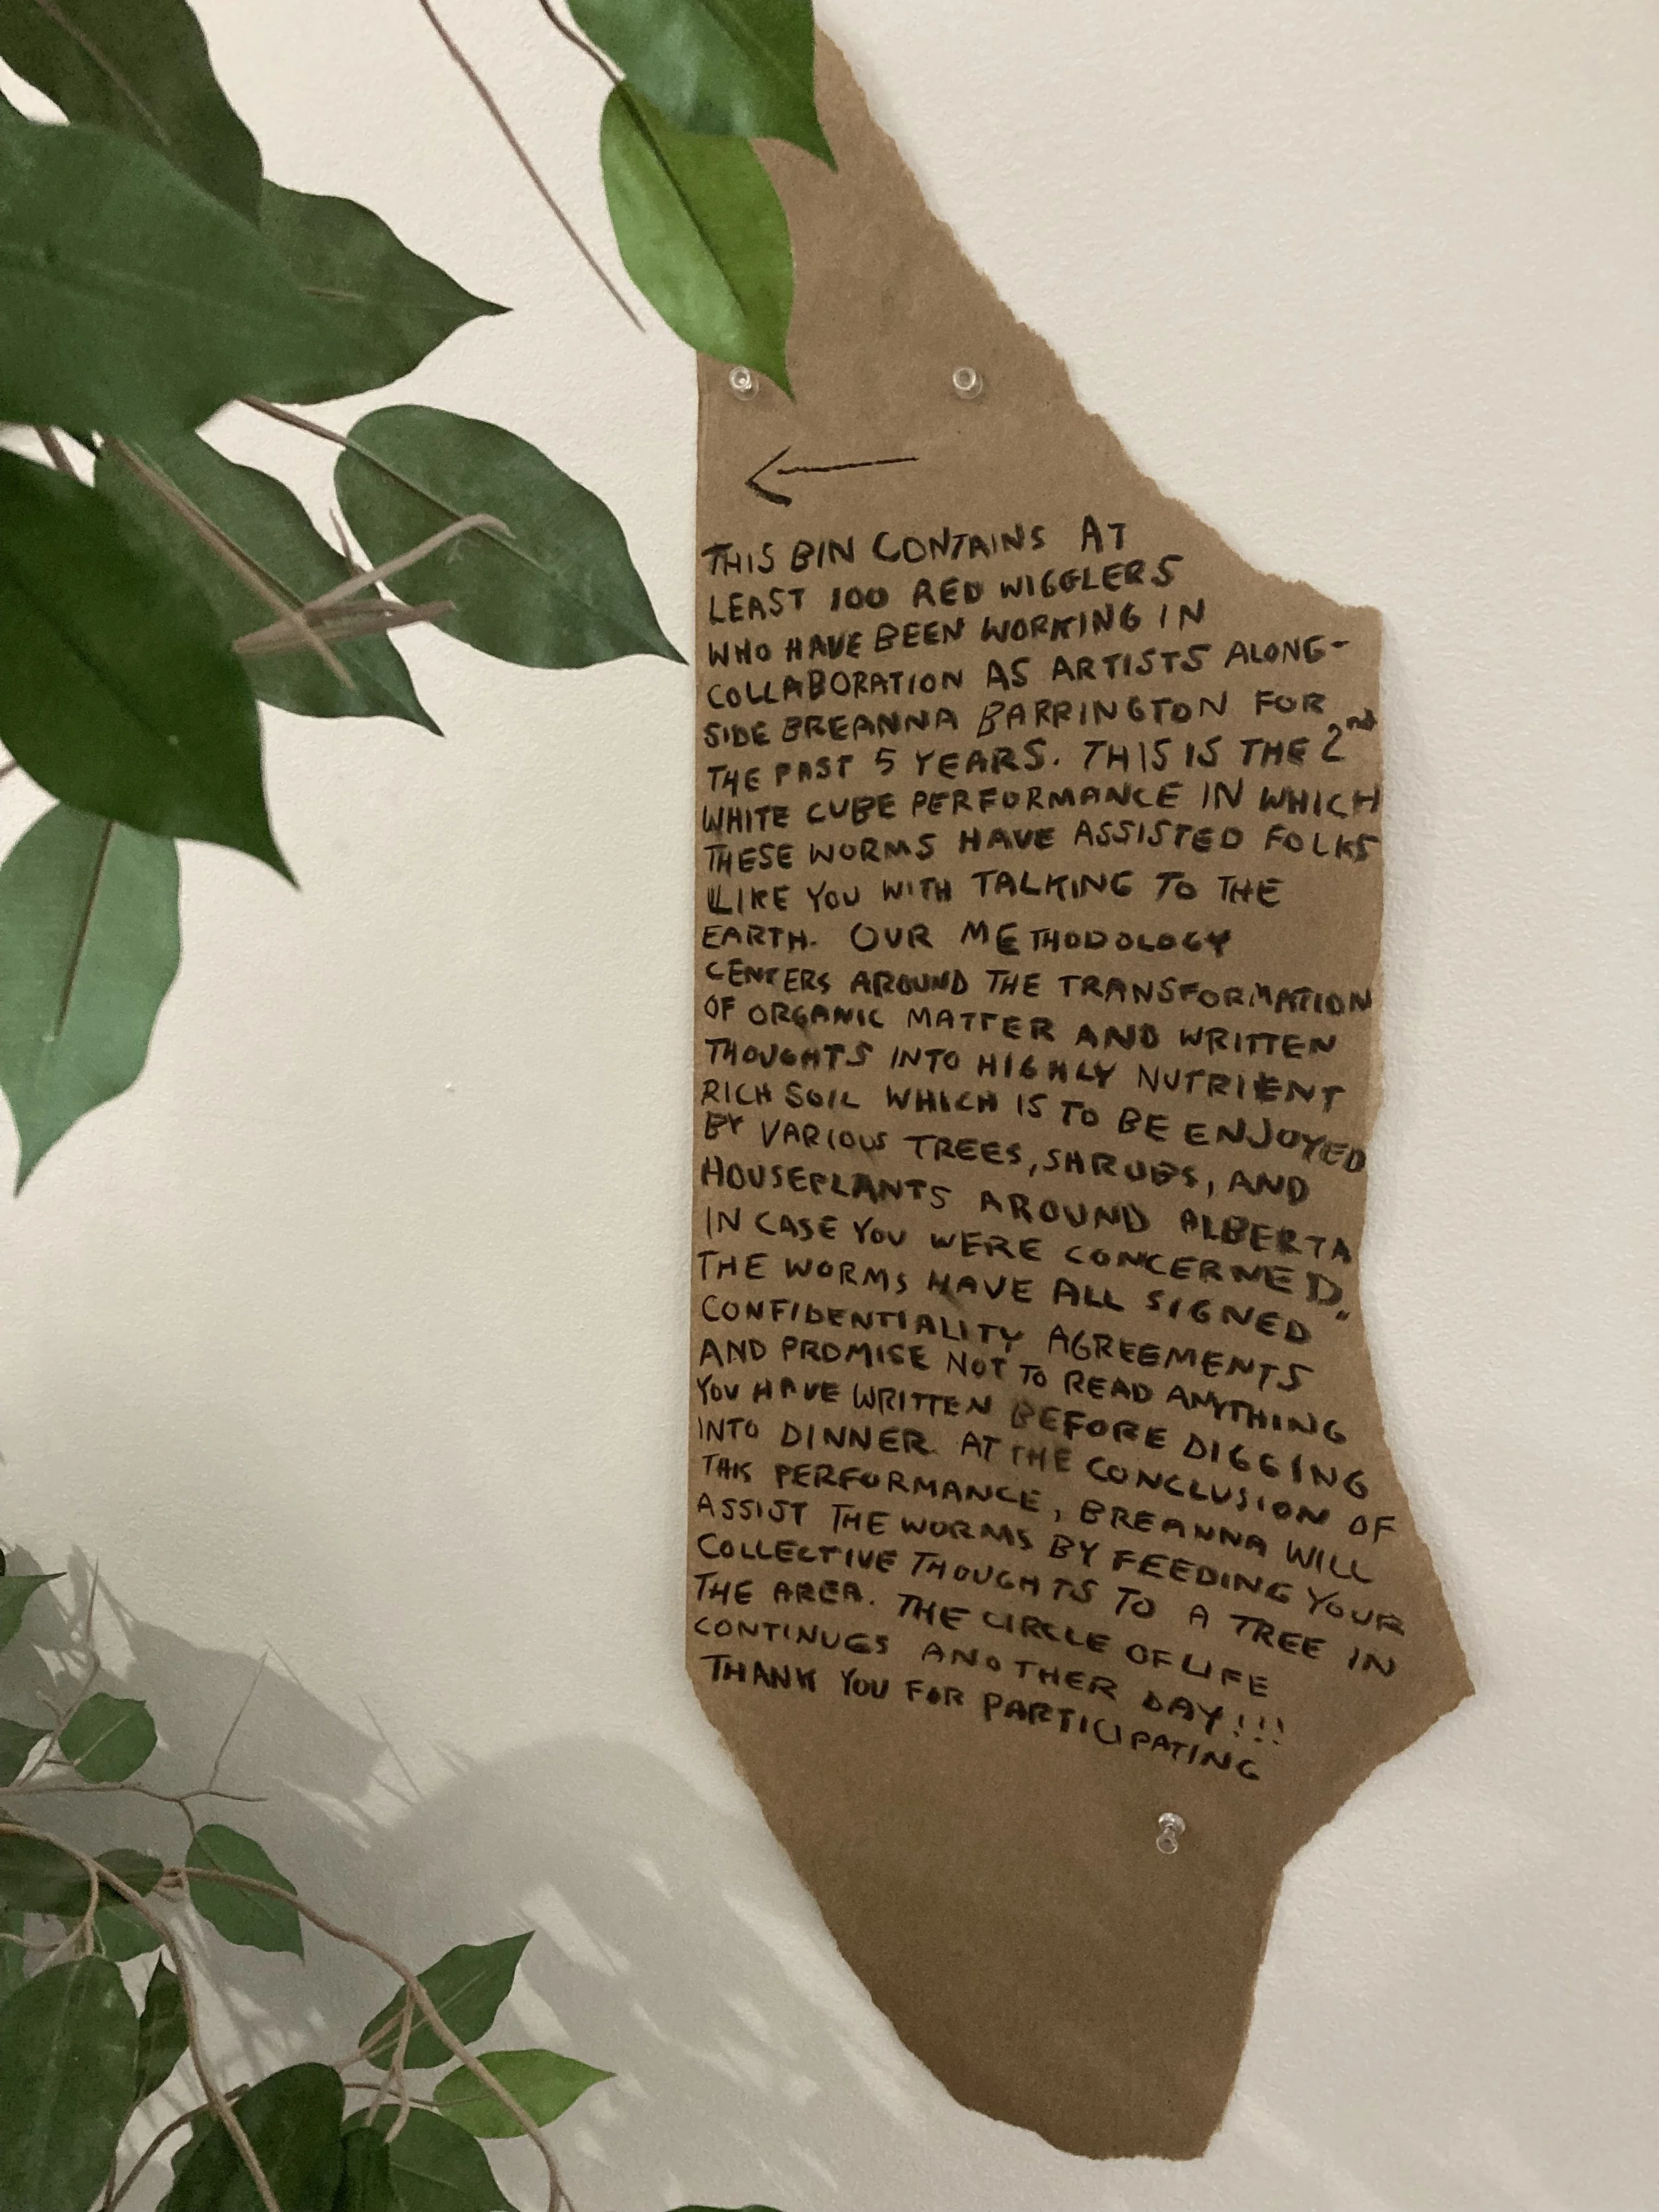 THIS BIN CONTAINS AT
LEAST 100 RED WIGGLERS
WHO HAVE BEEN WORKING IN
COLLABORATION AS ARTISTS ALONG-
SIDE BREANNA BARRINGTON FOR
THE PAST 5 YEARS. THIS IS THE 2nd
WHITE CUBE PERFORMANCE IN WHICH
THESE WORMS HAVE ASSISTED FOLKS
LIKE YOU WITH TALKING TO THE
EARTH. OUR METHODOLOGY
CENTERS AROUND THE TRANSFORMATION
OF ORGANIC MATTER AND WRITTEN
THOUGHTS INTO HIGHLY NUTRIENT
RICH SOIL WHICH IS TO BE ENJOYED
BY VARIOUS TREES, SHRUBS, AND
HOUSEPLANTS AROUND ALBERTA
IN CASE YOU WERE CONCERNED,
THE WORMS HAVE ALL SIGNED
CONFIDENTIALITY AGREEMENTS
AND PROMISE NOT TO READ ANYTHING
YOU HAVE WRITTEN BEFORE DIGGING
INTO DINNER. AT THE CONCLUSION OF
THIS PERFORMANCE, BREANNA WILL
ASSIST THE WORMS BY FEEDING YOUR
COLLECTIVE THOUGHTS TO A TREE IN
THE AREA. THE CIRCLE OF LIFE
CONTINUES ANOTHER DAY!!!
THANK YOU FOR PARTICIPATING